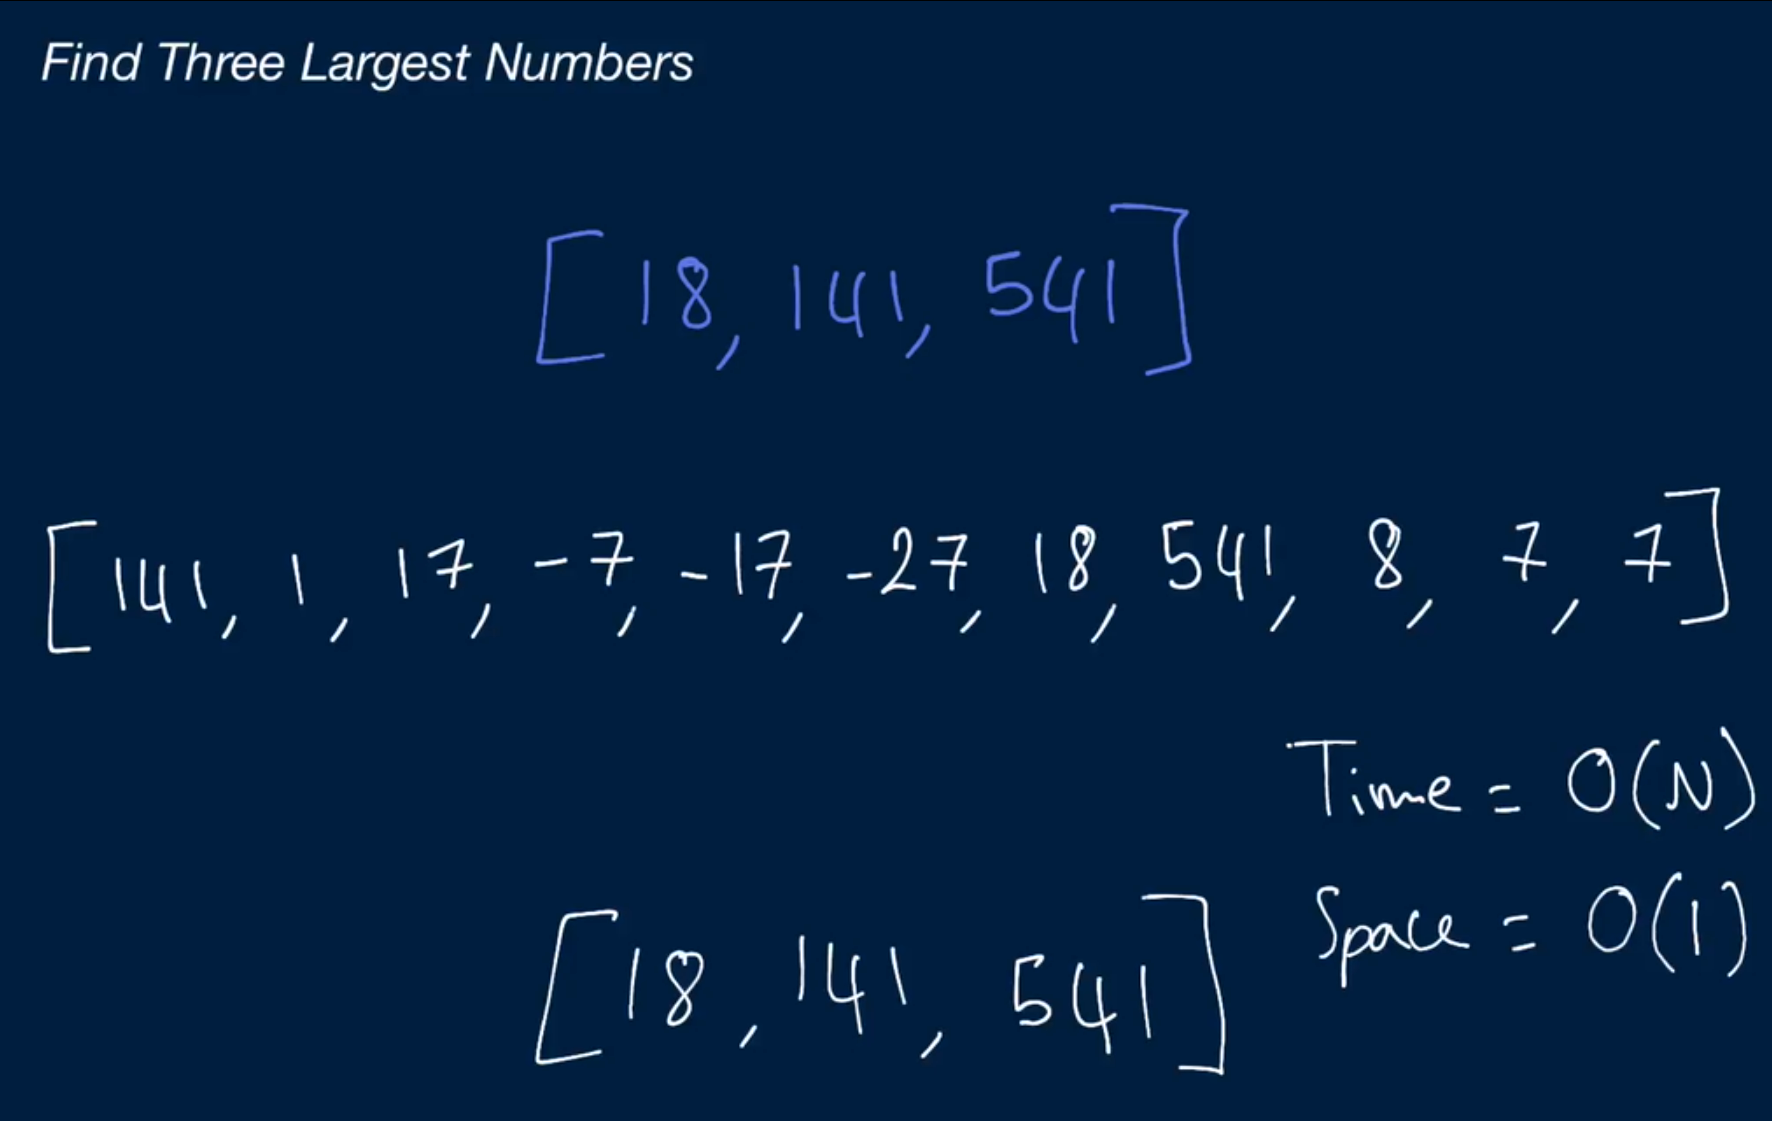 Find Three Largest Numbers
[18, 141, 541]
[141, 1, 17, -7, -17, -27, 18, 541, 8, 7, 7]
Time = O(N)
Space = O(1)
[18, 141, 541]